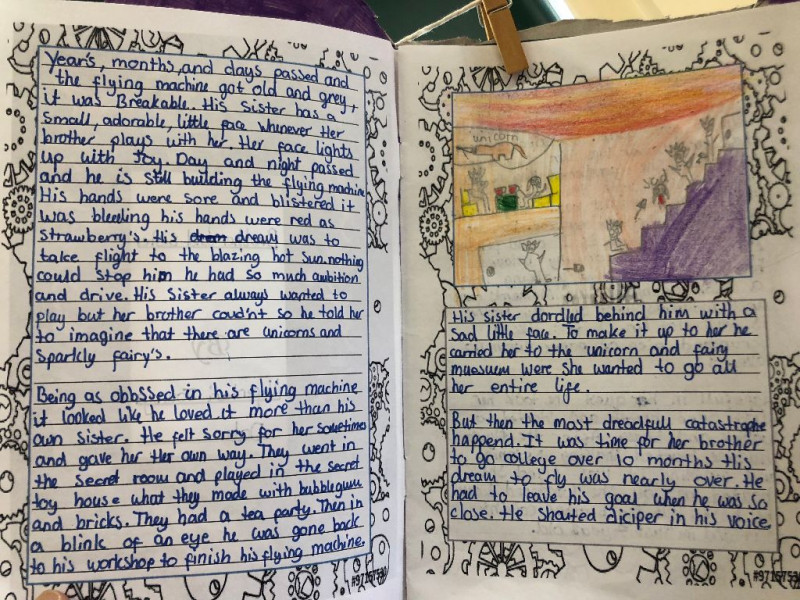 Year's, months, and days passed and
the flying machine got old and grey,
it was Breakable. His Sister has a
Small, adorable, little face whenever Her
brother plays with her. Her face lights
up with Joy. Day and night passed
and he is still building the flying machine
His hands were sore and blistered it
was bleeding his hands were red as
Strawberry's. His dream was to
take flight to the blazing hot sun. nothing
could stop him he had so much ambition
and drive. His Sister always wanted to
play but her brother coud'nt so he told her
to imagine that there are unicorns and
Sparkly fairy's.
Being as obbssed in his flying machine
it looked like he loved it more than his
own sister. He felt sorry for her sometimes
and gave her Her own way. They went in
the secret room and played in the secret
toy house what they made with bubblegum
and bricks. They had a tea party. Then in
a blink of an eye he was gone back
to his workshop to finish his flying machine.
unicorn
His sister dordled behind him with a
Sad little face. To make it up to her he
carried her to the unicorn and fairy
muesuem were She wanted to go all
her entire life.
But then the most dreadfull catastrophe
happend. It was time for her brother
to go college over 10 months His
dream to fly was nearly over. He
had to leave his goal when he was so
close. He Shouted diciper in his voice